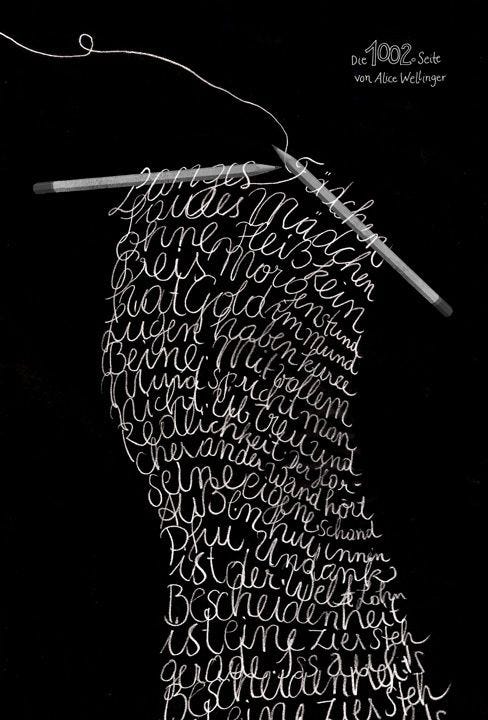 Die 1002. Seite
von Alice Wellinger
Langes Fädchn
faules Mädchn
Ohne Fleiß kein
Preis Morgenstund
hat Gold im Mund
Lügen haben kurze
Beine. Mit vollem
Mund spricht man
nicht. Üb treu und
Redlichkeit Der Hor-
cher an der Wand hört
seine eigene Schand
Außen hui innen
Pfui. Undank
ist der Welt Lohn
Bescheidenheit
ist eine Zier Steh
gerade. Iss
Bescheidenheit
eine Zier Steh